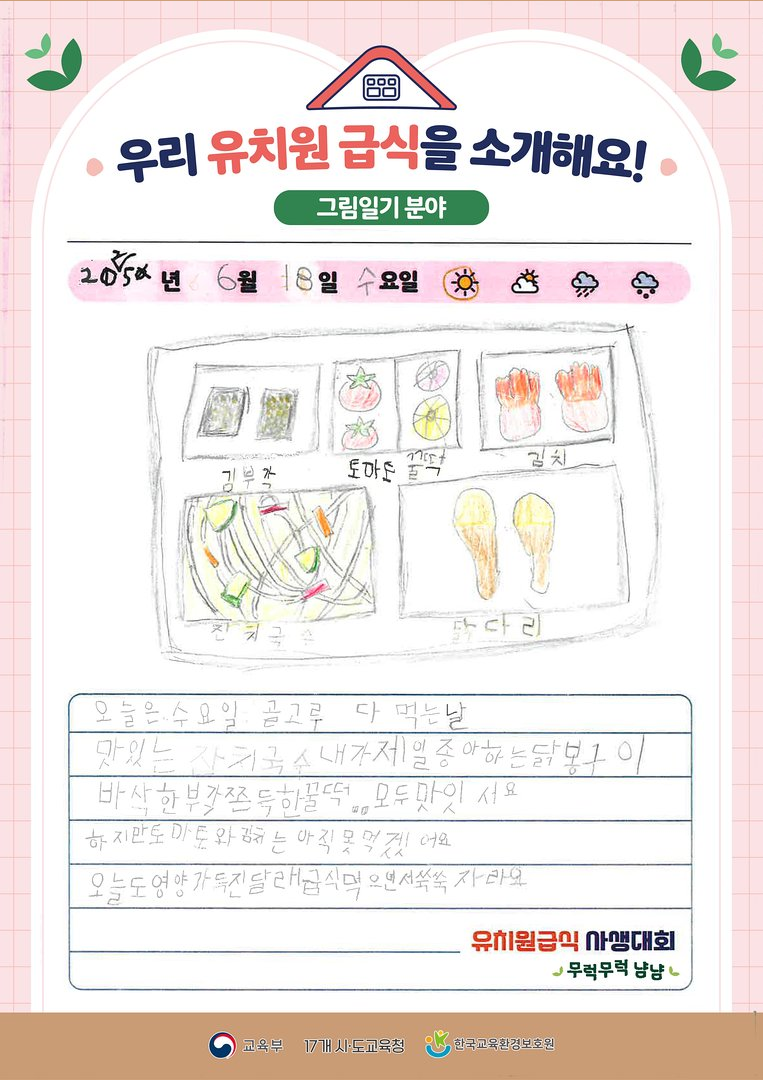 우리 유치원 급식을 소개해요!
그림일기 분야
2025년 6월 18일 수요일
김부각 토마토 꿀떡 김치
잔치국수 닭다리
오늘은 수요일 골고루 다 먹는날
맛있는 잔치국수 내가제일종아하는닭봉구이
바삭한부각쫀득한꿀떡.. 모두맛잇서요
하지만토마토와김치는아직못먹겠어요
오늘도영양가득진달래급식먹으면서쑥쑥자라요
유치원급식 사생대회
무럭무럭 냠냠
교육부 17개 시·도교육청 한국교육환경보호원